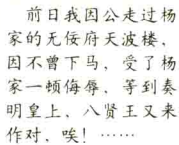 前日我因公走过杨
家的无佞府天波楼,
因不曾下马,受了杨
家一顿侮辱,等到奏
明皇上,八贤王又来
作对,唉!……